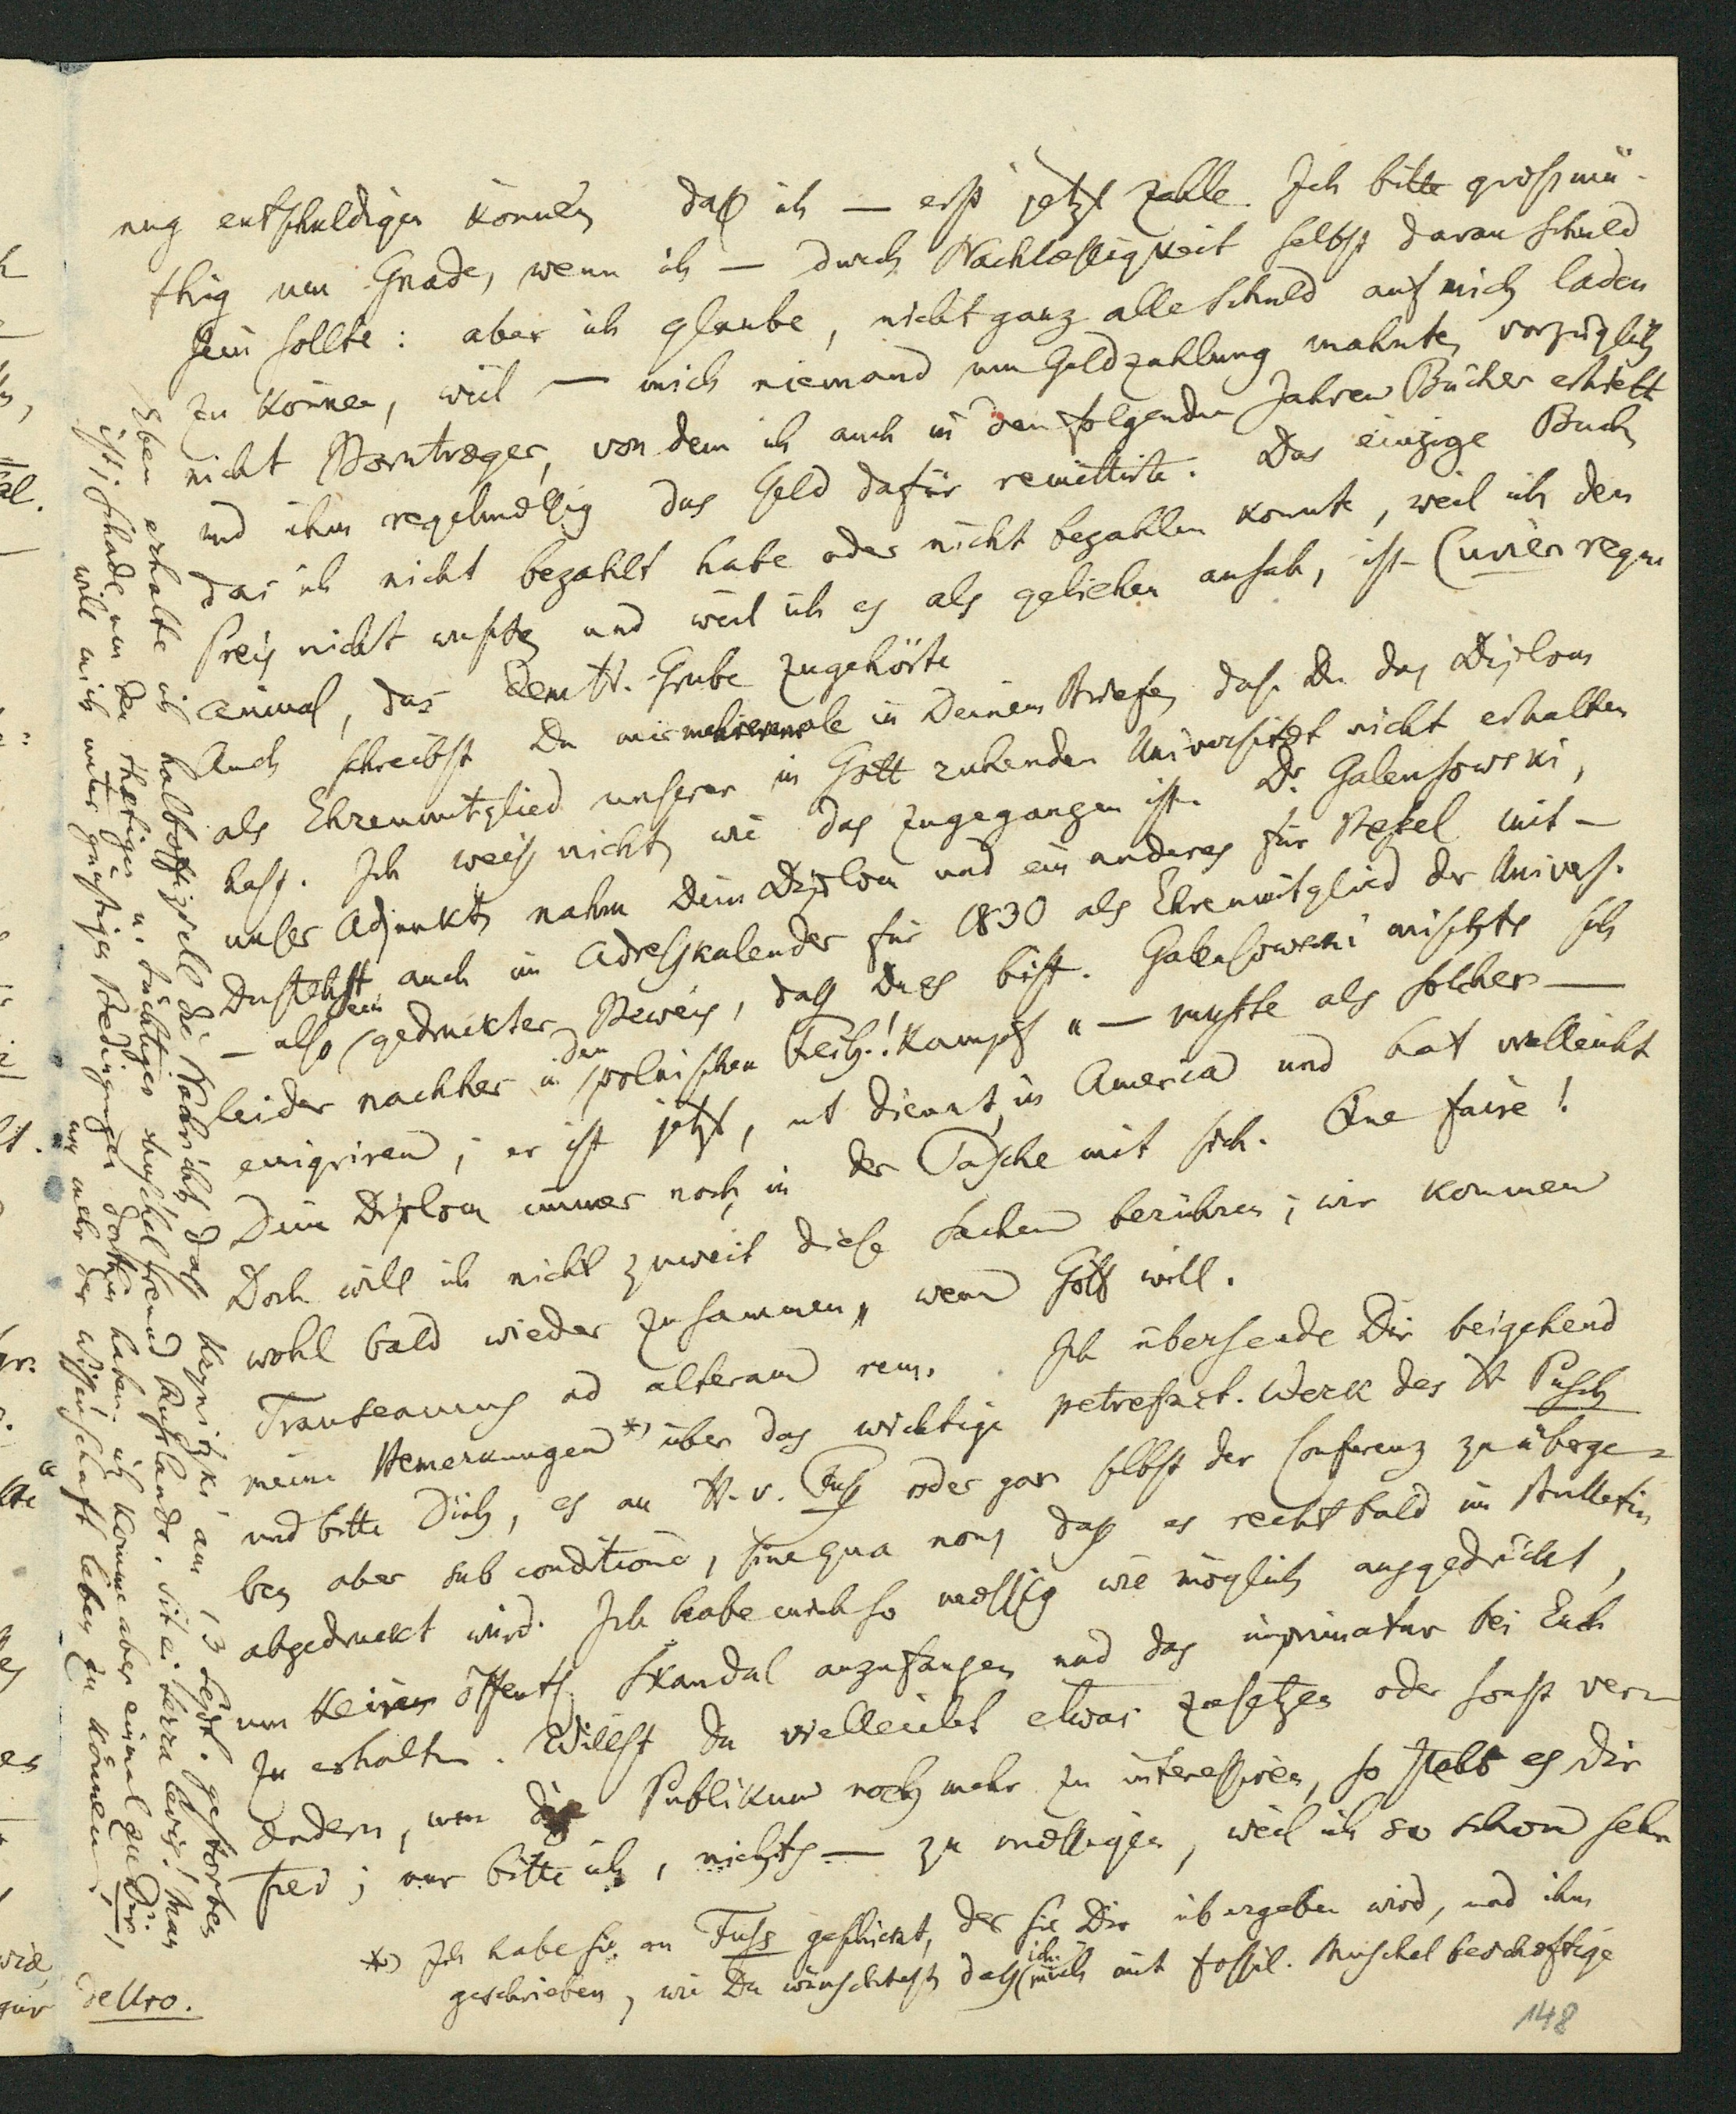 nug entschuldigen können, daß ich — erst jetzt zahle. Ich bitte großmü-
thig um Gnade, wenn ich — durch Nachlæssigkeit selbst daran Schuld
sein sollte: aber ich glaube, nicht ganz alle Schuld auf mich laden
zu können, weil — mich niemand um Geldzahlung mahnte, vorzüglich
nicht Borntræger, von dem ich auch in den folgenden Jahren Bücher erhielt
und ihm regelmæssig das Geld dafür remittirte. Das einzige Buch,
das ich nicht bezahlt habe oder nicht bezahlen konnte, weil ich den
Preis nicht wußte, und weil ich es als geliehen ansah, ist Cuvier regne
animal, das dem H. Grube zugehörte
Auch schreibst Du mir mehreremale in Deinem Briefe, daß Du das Diplom
als Ehrenmitglied unserer in Gott ruhenden Universitæt nicht erhalten
hast. Ich weiß nicht, wie das zugegangen ist. Dr. Galensowski,
unser Adjunkt, nahm Dein Diplom und ein anderes für Bessel mit —
Du stehst auch im Adreßkalender für 1830 als Ehrenmitglied der Univers.
— also ein gedruckter Beweis, daß Du es bist. Galensowski mischte sich
leider nachher in den polnischen Frei!kampf " — mußte als solcher —
emigriren; er ist jetzt, ut dicunt, in America und hat vielleicht
Dein Diplom immer noch in der Tasche mit sich. Que faire!
Doch will ich nicht zuweit diese Sachen berühren; wir kommen
wohl bald wieder zusammen, wenn Gott will.
Transeamus ad alteram rem. Ich übersende Dir beigehend
meine Bemerkungen *) über das wichtige petrefact. Werk des H. Pusch
und bitte Dich, es an H. v. Fuss oder gar selbst der Conferenz zu überge-
ben aber sub conditione, sine qua non, daß es recht bald im Bulletin
abgedruckt wird. Ich habe mich so mæssig wie möglich ausgedrückt,
um keinen öffentl. Skandal anzufangen und das imprimatur bei Euch
zu erhalten. Willst Du vielleicht etwas zusetzen oder sonst ver-
ändern, um das Publikum noch mehr zu interessiren, so steht es Dir
frei; nur bitte ich, nichts — zu mæssigen, weil ich so schon sehr
*) Ich habe sie an Fuss geschickt, der sie Dir übergeben wird, und ihm
geschrieben, wie Du wünschtest, daß ich mich mit fossil. Muschel beschæftige
148
Eben erhalte ich halboffiziell die Nachricht, daß Krynitzki am 13 Sept. gestorben
ist; schade um den thætigen u. tüchtigen Muschelfreund Rußlands. Sit ei terra levis! Man
will mich unter günstigen Bedingungen dorthin haben. ich komme aber einmal zu Dir,
um mehr der Wissenschaft leben zu können!
de Uro.